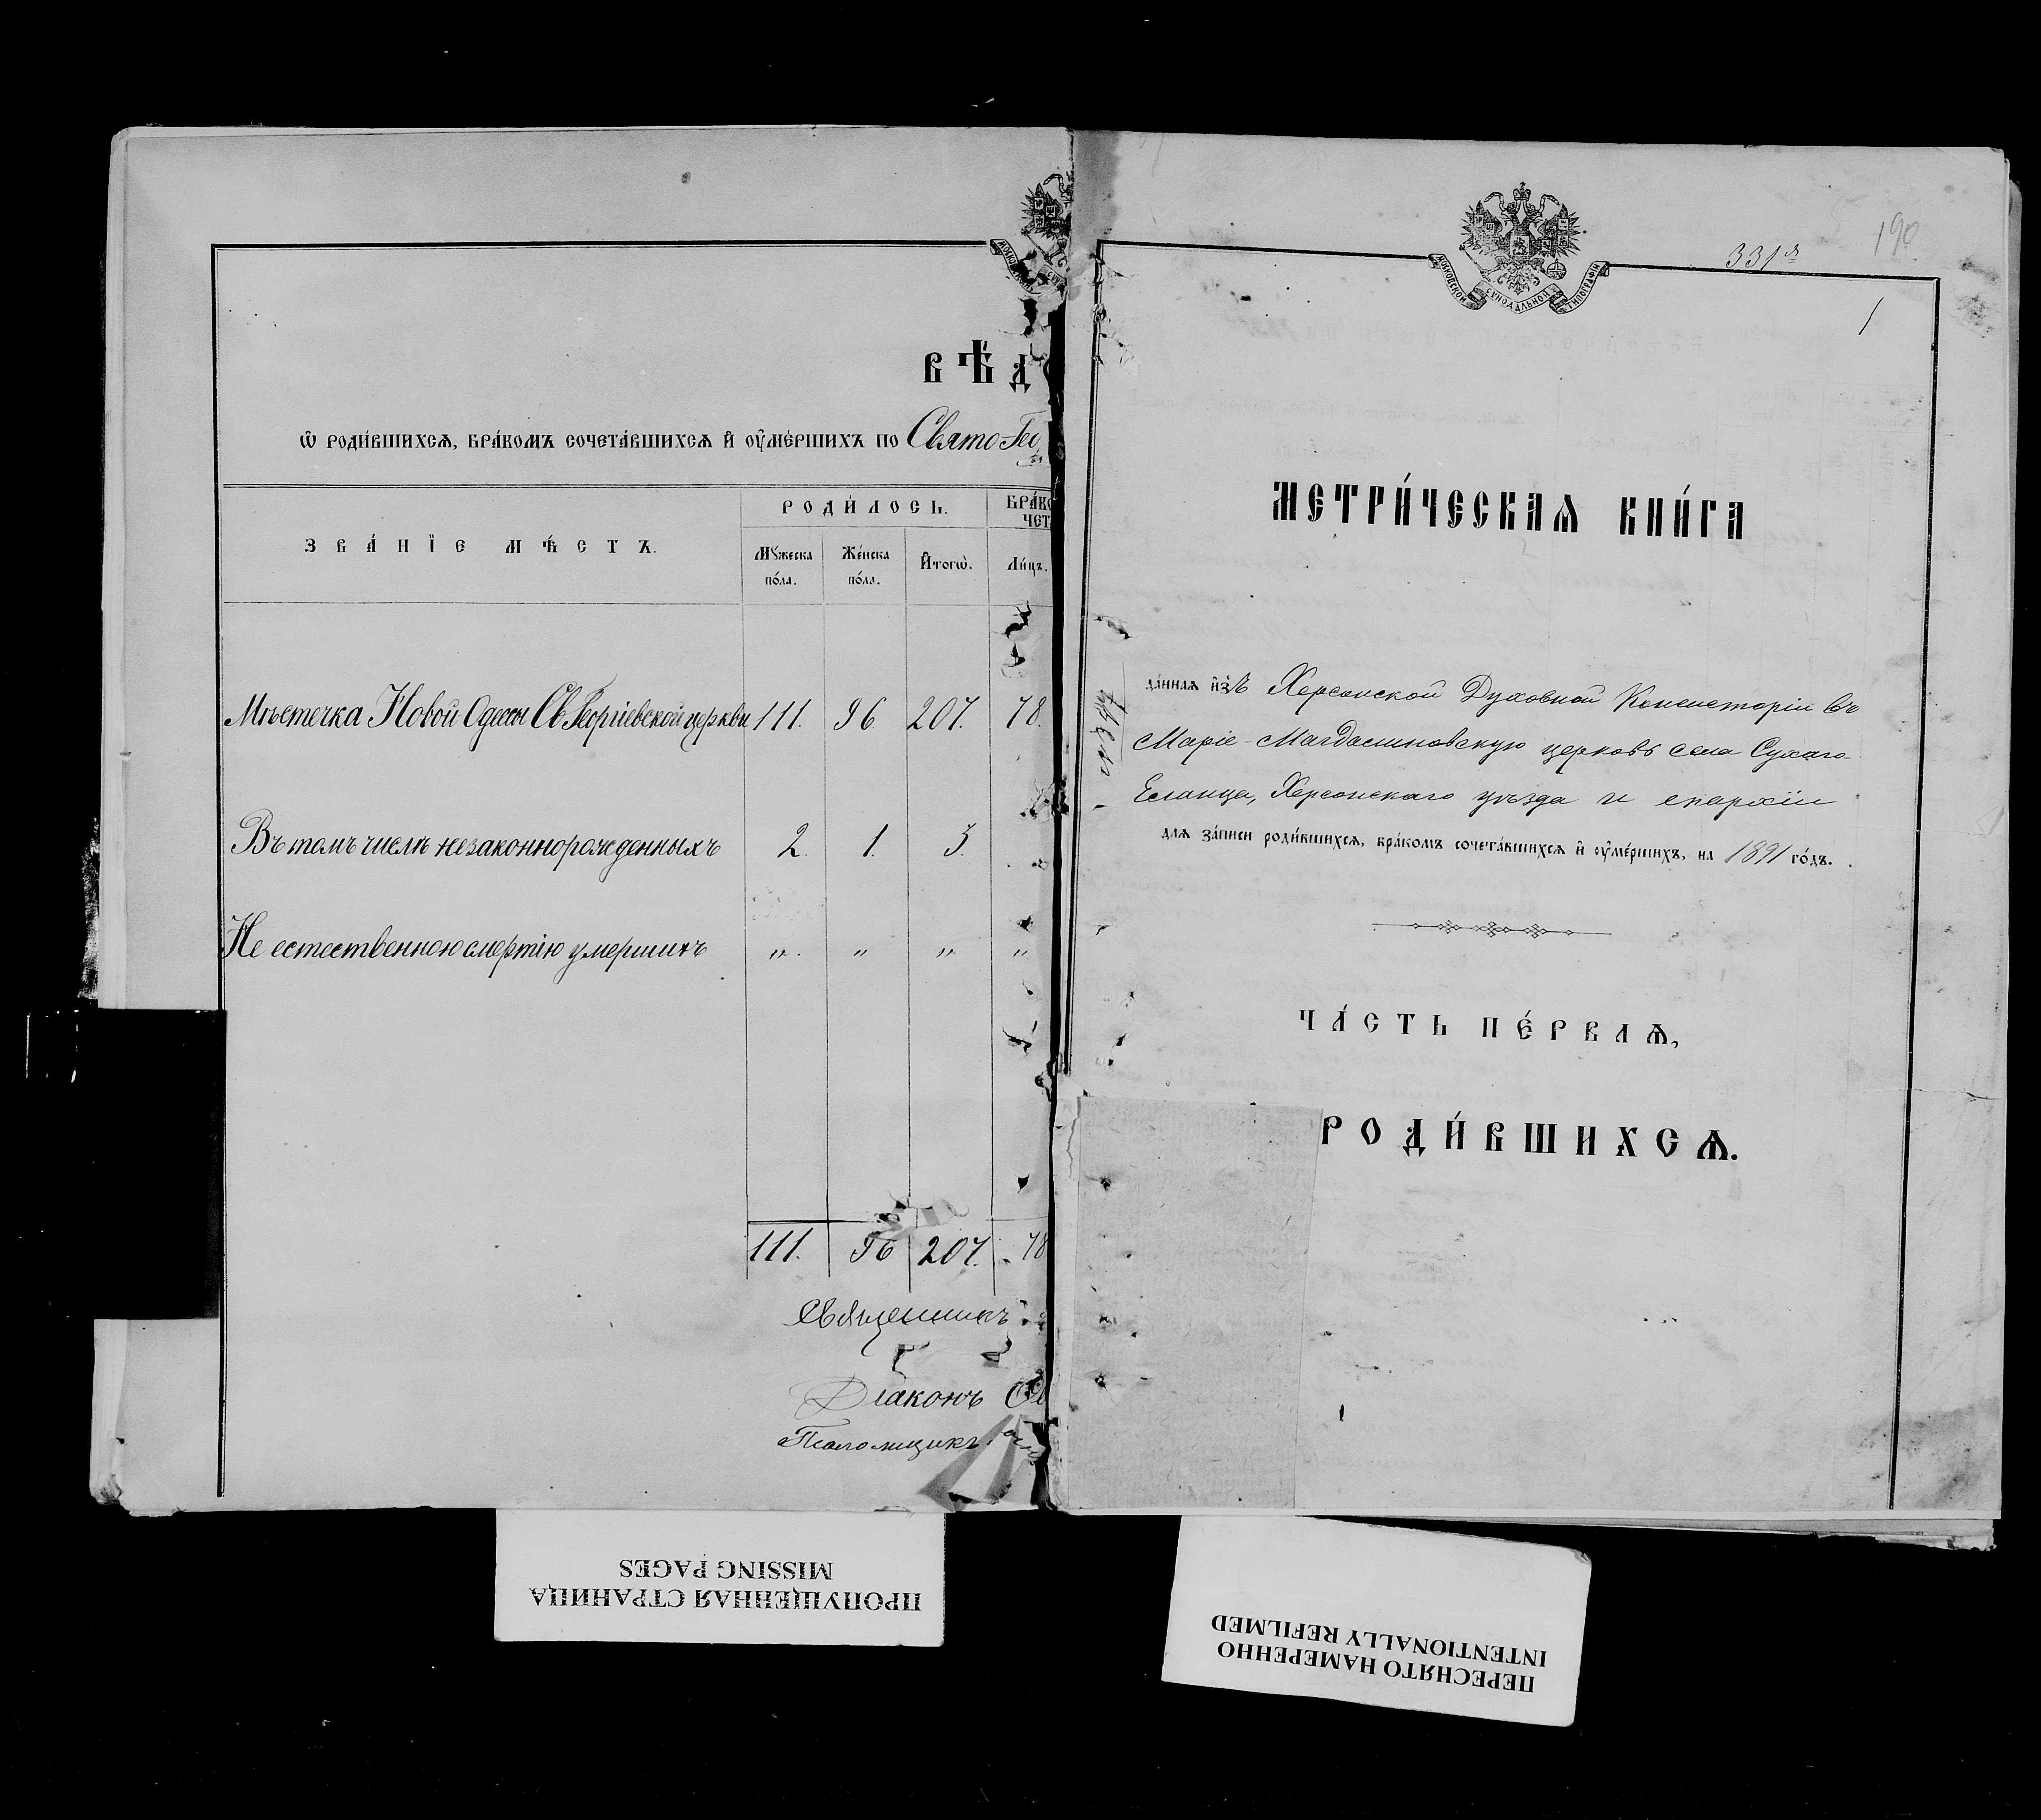 ВѢДО
Ѡ РОДИ́ВШИХСѦ, БРА́КОМЪ СОЧЕТА́ВШИХСѦ И҆ ОУ҆МЕ́РШИХЪ ПО Свято-Гео
ЗВА́НІЕ МѢ́СТЪ.
РОДИ́ЛОСЬ.
БРА́КО
ЧЕТ
Мꙋ́жеска по́ла.
Же́нска по́ла.
И҆тогѡ̀.
Ли́цъ.
Мѣстечка Новой Одессы Св. Георгіевской церкви 111. 96. 207. 78.
Въ томъ числѣ незаконнорожденныхъ 2. 1. 3.
Не естественною смертію умершихъ „ „ „ „
111. 96 207. 78
Священникъ
Діаконъ
Псаломщикъ
331я
190
1
МОСКОВСКОЙ СѴНОДАЛЬНОЙ ТИПОГРАФІИ
МЕТРИ́ЧЕСКАѦ КНИ́ГА
да́ннаѧ и҆зъ Херсонской Духовной Консисторіи въ
Маріе-Магдалиновскую церковь села Сухаго
Еланца, Херсонскаго уѣзда и епархіи
длѧ за́писи роди́вшихсѧ, бра́комъ сочета́вшихсѧ и҆ оу҆ме́ршихъ, на 1891 го́дъ.
ЧА́СТЬ ПЕ́РВАѦ,
РОДИ́ВШИХСѦ.
ПРОПУЩЕННАЯ СТРАНИЦА
MISSING PAGES
ПЕРЕСНЯТО НАМЕРЕННО
INTENTIONALLY REFILMED